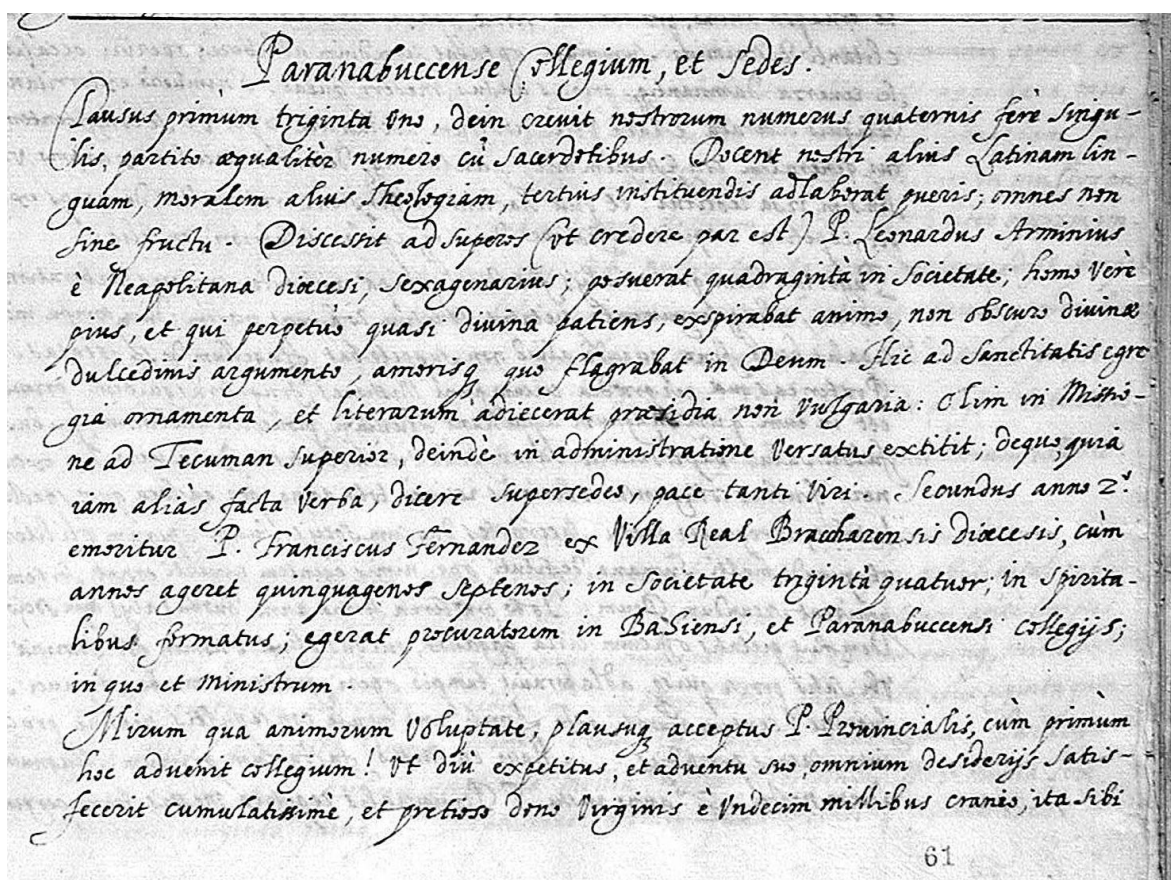 Paranabuccense Collegium, et Sedes.
Clausus primùm triginta uno, dein crevit nostrorum numerus quaternis ferè singu-
lis, partito æqualitèr numero cũ sacerdotibus. Docent nostri alius Latinam lin-
guam, moralem alius Theologiam, tertius instituendis adlaborat pueris; omnes non
sine fructu. Discessit ad superos (ut credere par est) P. Leonardus Arminius
è Neapolitana diœcesi, sexagenarius; posuerat quadragintà in Societate; homo verè
pius, et qui perpetuò quasi divina patiens, exspirabat animo, non obscuro divinæ
dulcedinis argumento, amorisq, quo flagrabat in Deum Hic ad sanctitatis egre
gia ornamenta, et literarum adiecerat præsidia non vulgaria: olim in Missio-
ne ad Tecuman superior, deindè in administratione versatus extitit; de quo, quia
iam aliàs facta verba, dicere supersedeo, pace tanti viri. Secundus anno 2.º
emoritur P. Franciscus Fernandez ex Villa Real Bracharensis diœcesis, cùm
annos ageret quinquagenos septenos; in Societate trigintà quatuor; in spirita-
libus formatus; egerat procuratorem in Bahiensi, et Paranabuccensi collegijs;
in quo et Ministrum.
Mirum qua animorum voluptate, plausuq, acceptus P. Provincialis, cùm primùm
hoc advenit collegium! Ut diù expetitus, et adventu suo, omnium desiderijs satis-
fecerit cumulatissimè, et pretioso dono Virginis è Undecim millibus cranio, ita sibi
61